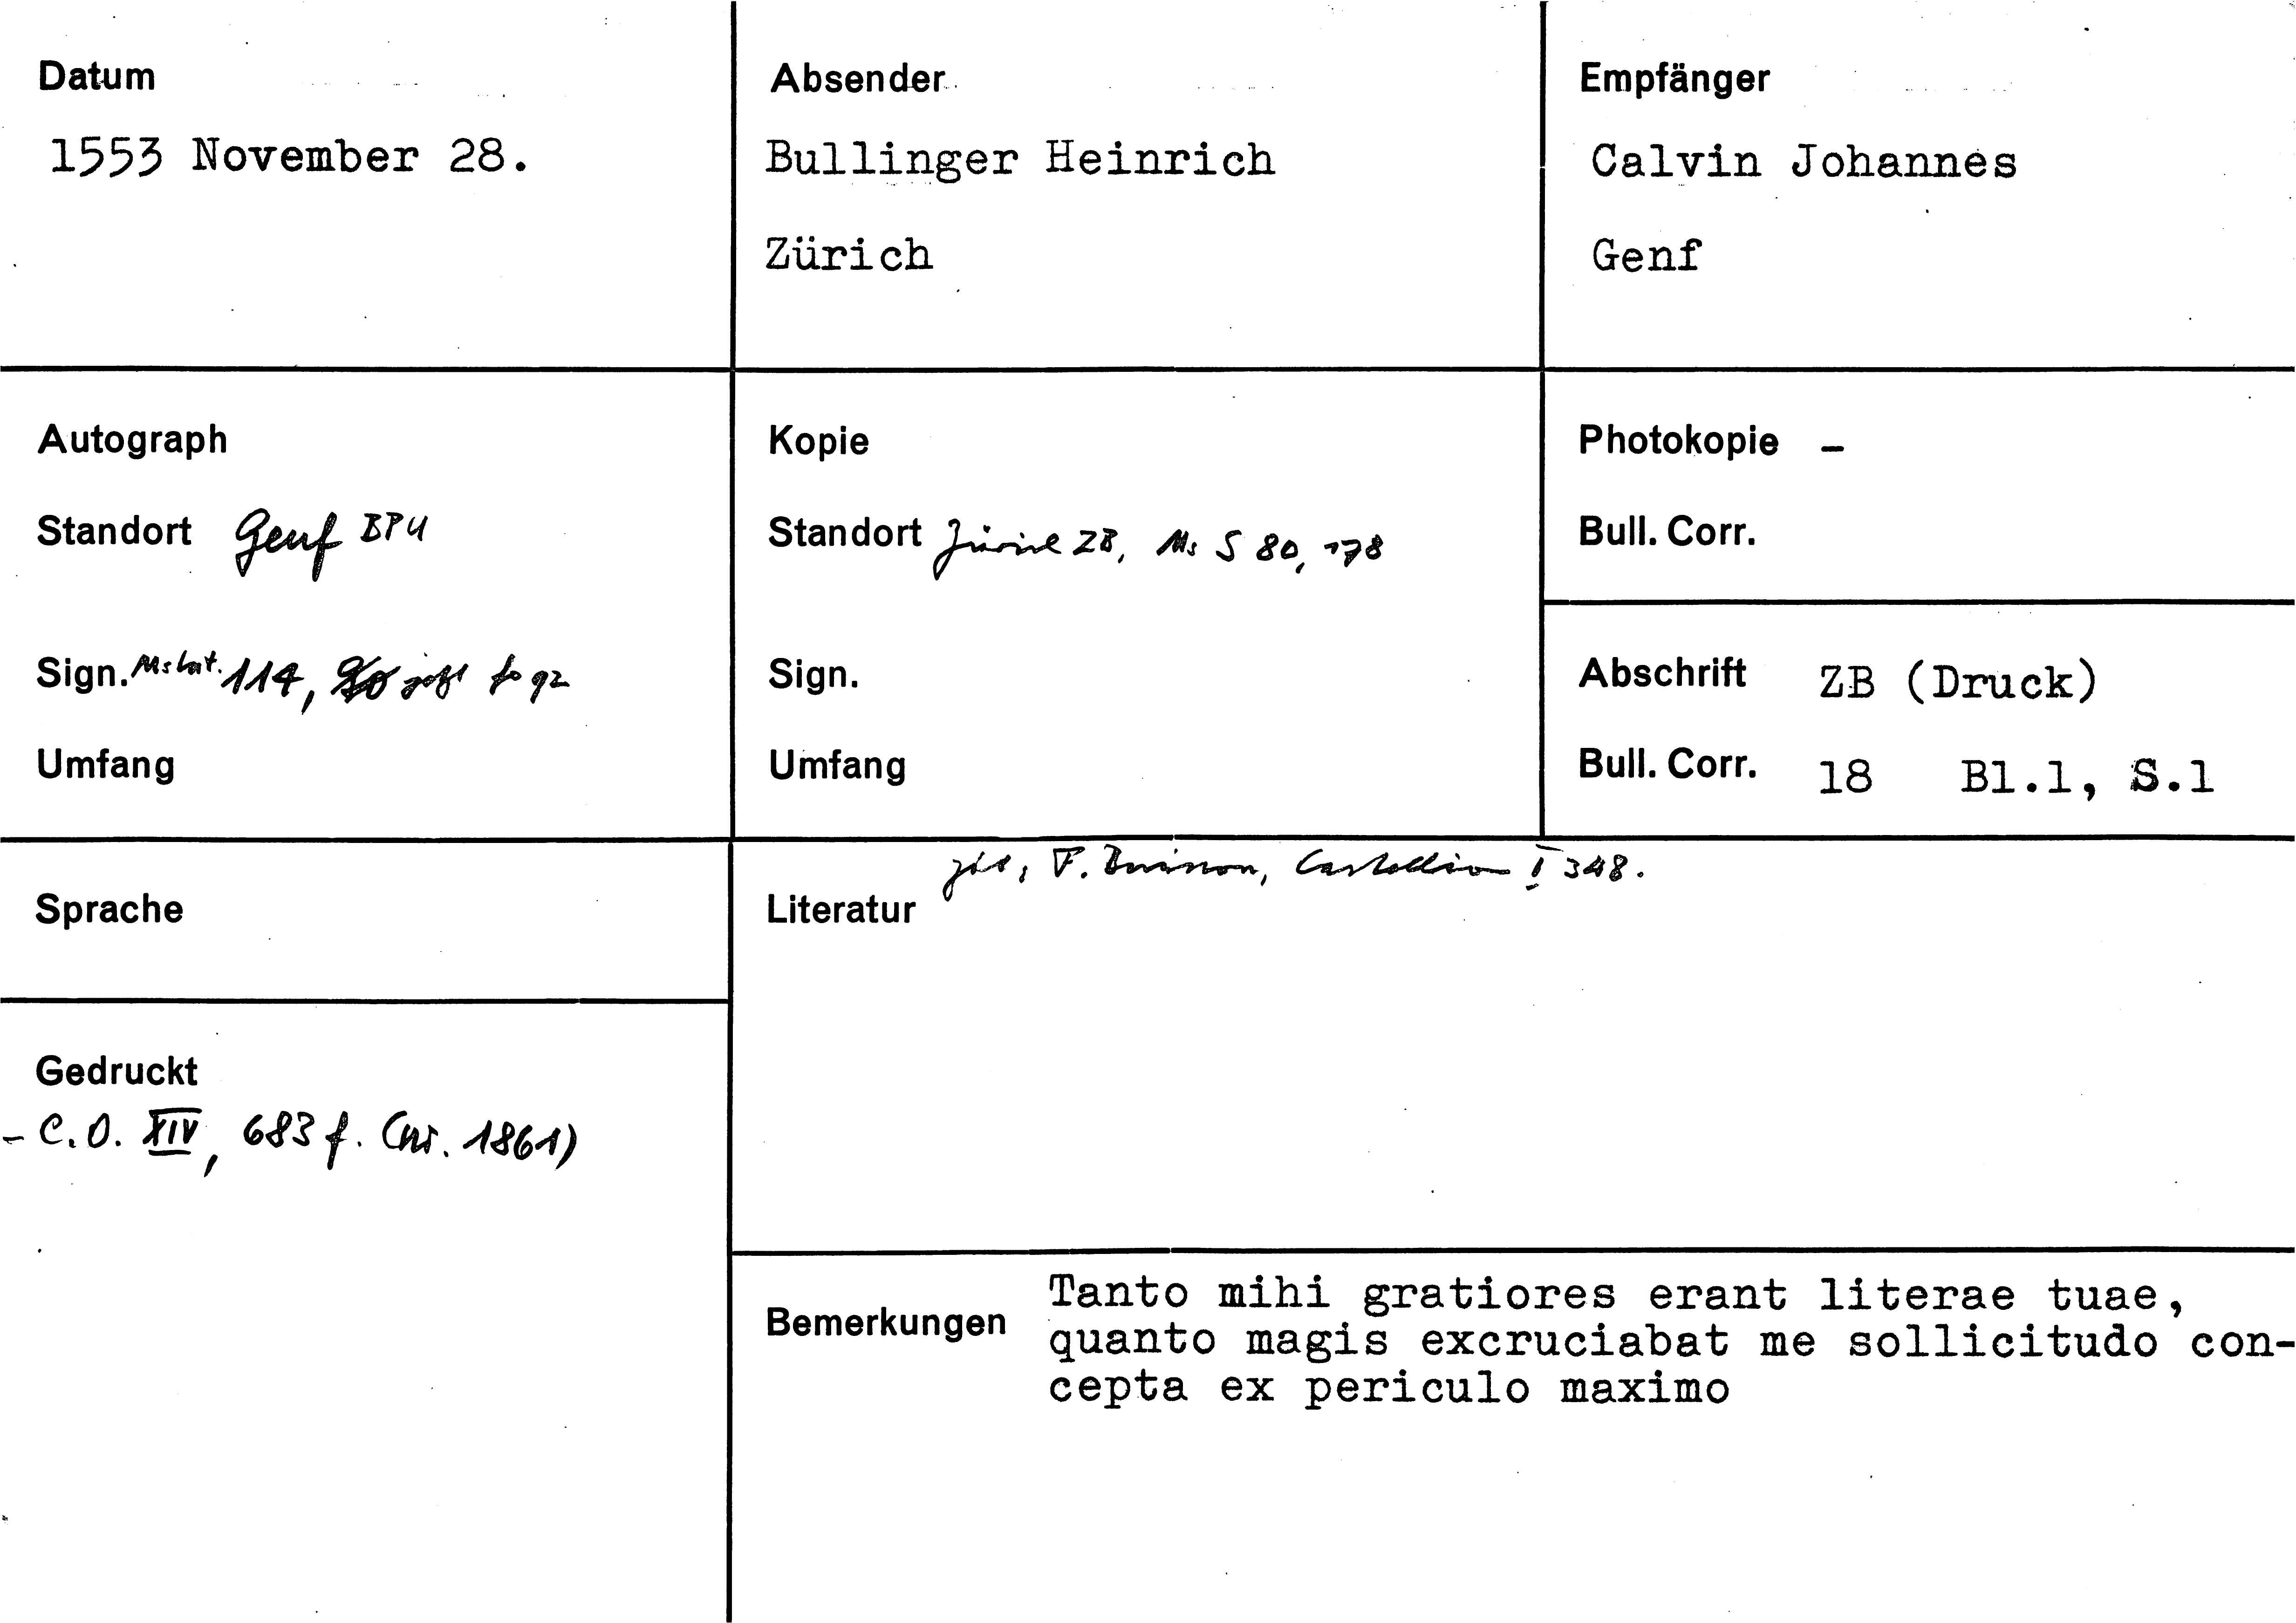 Datum
1553 November 28.
Absender
Bullinger Heinrich
Zürich
Empfänger
Calvin Johannes
Genf
Autograph
Standort Genf BPU
Sign. Ms lat. 114, jetzt fo 92
Umfang
Kopie
Standort Zürich ZB, Ms S 80, 178
Sign.
Umfang
Photokopie –
Bull. Corr.
Abschrift ZB (Druck)
Bull. Corr. 18 Bl.1, S.1
Sprache
Gedruckt
- C.O. XIV, 683 f. (nr. 1861)
zit. F. Buisson, Castellion I 348.
Literatur
Bemerkungen
Tanto mihi gratiores erant literae tuae,
quanto magis excruciabat me sollicitudo con-
cepta ex periculo maximo